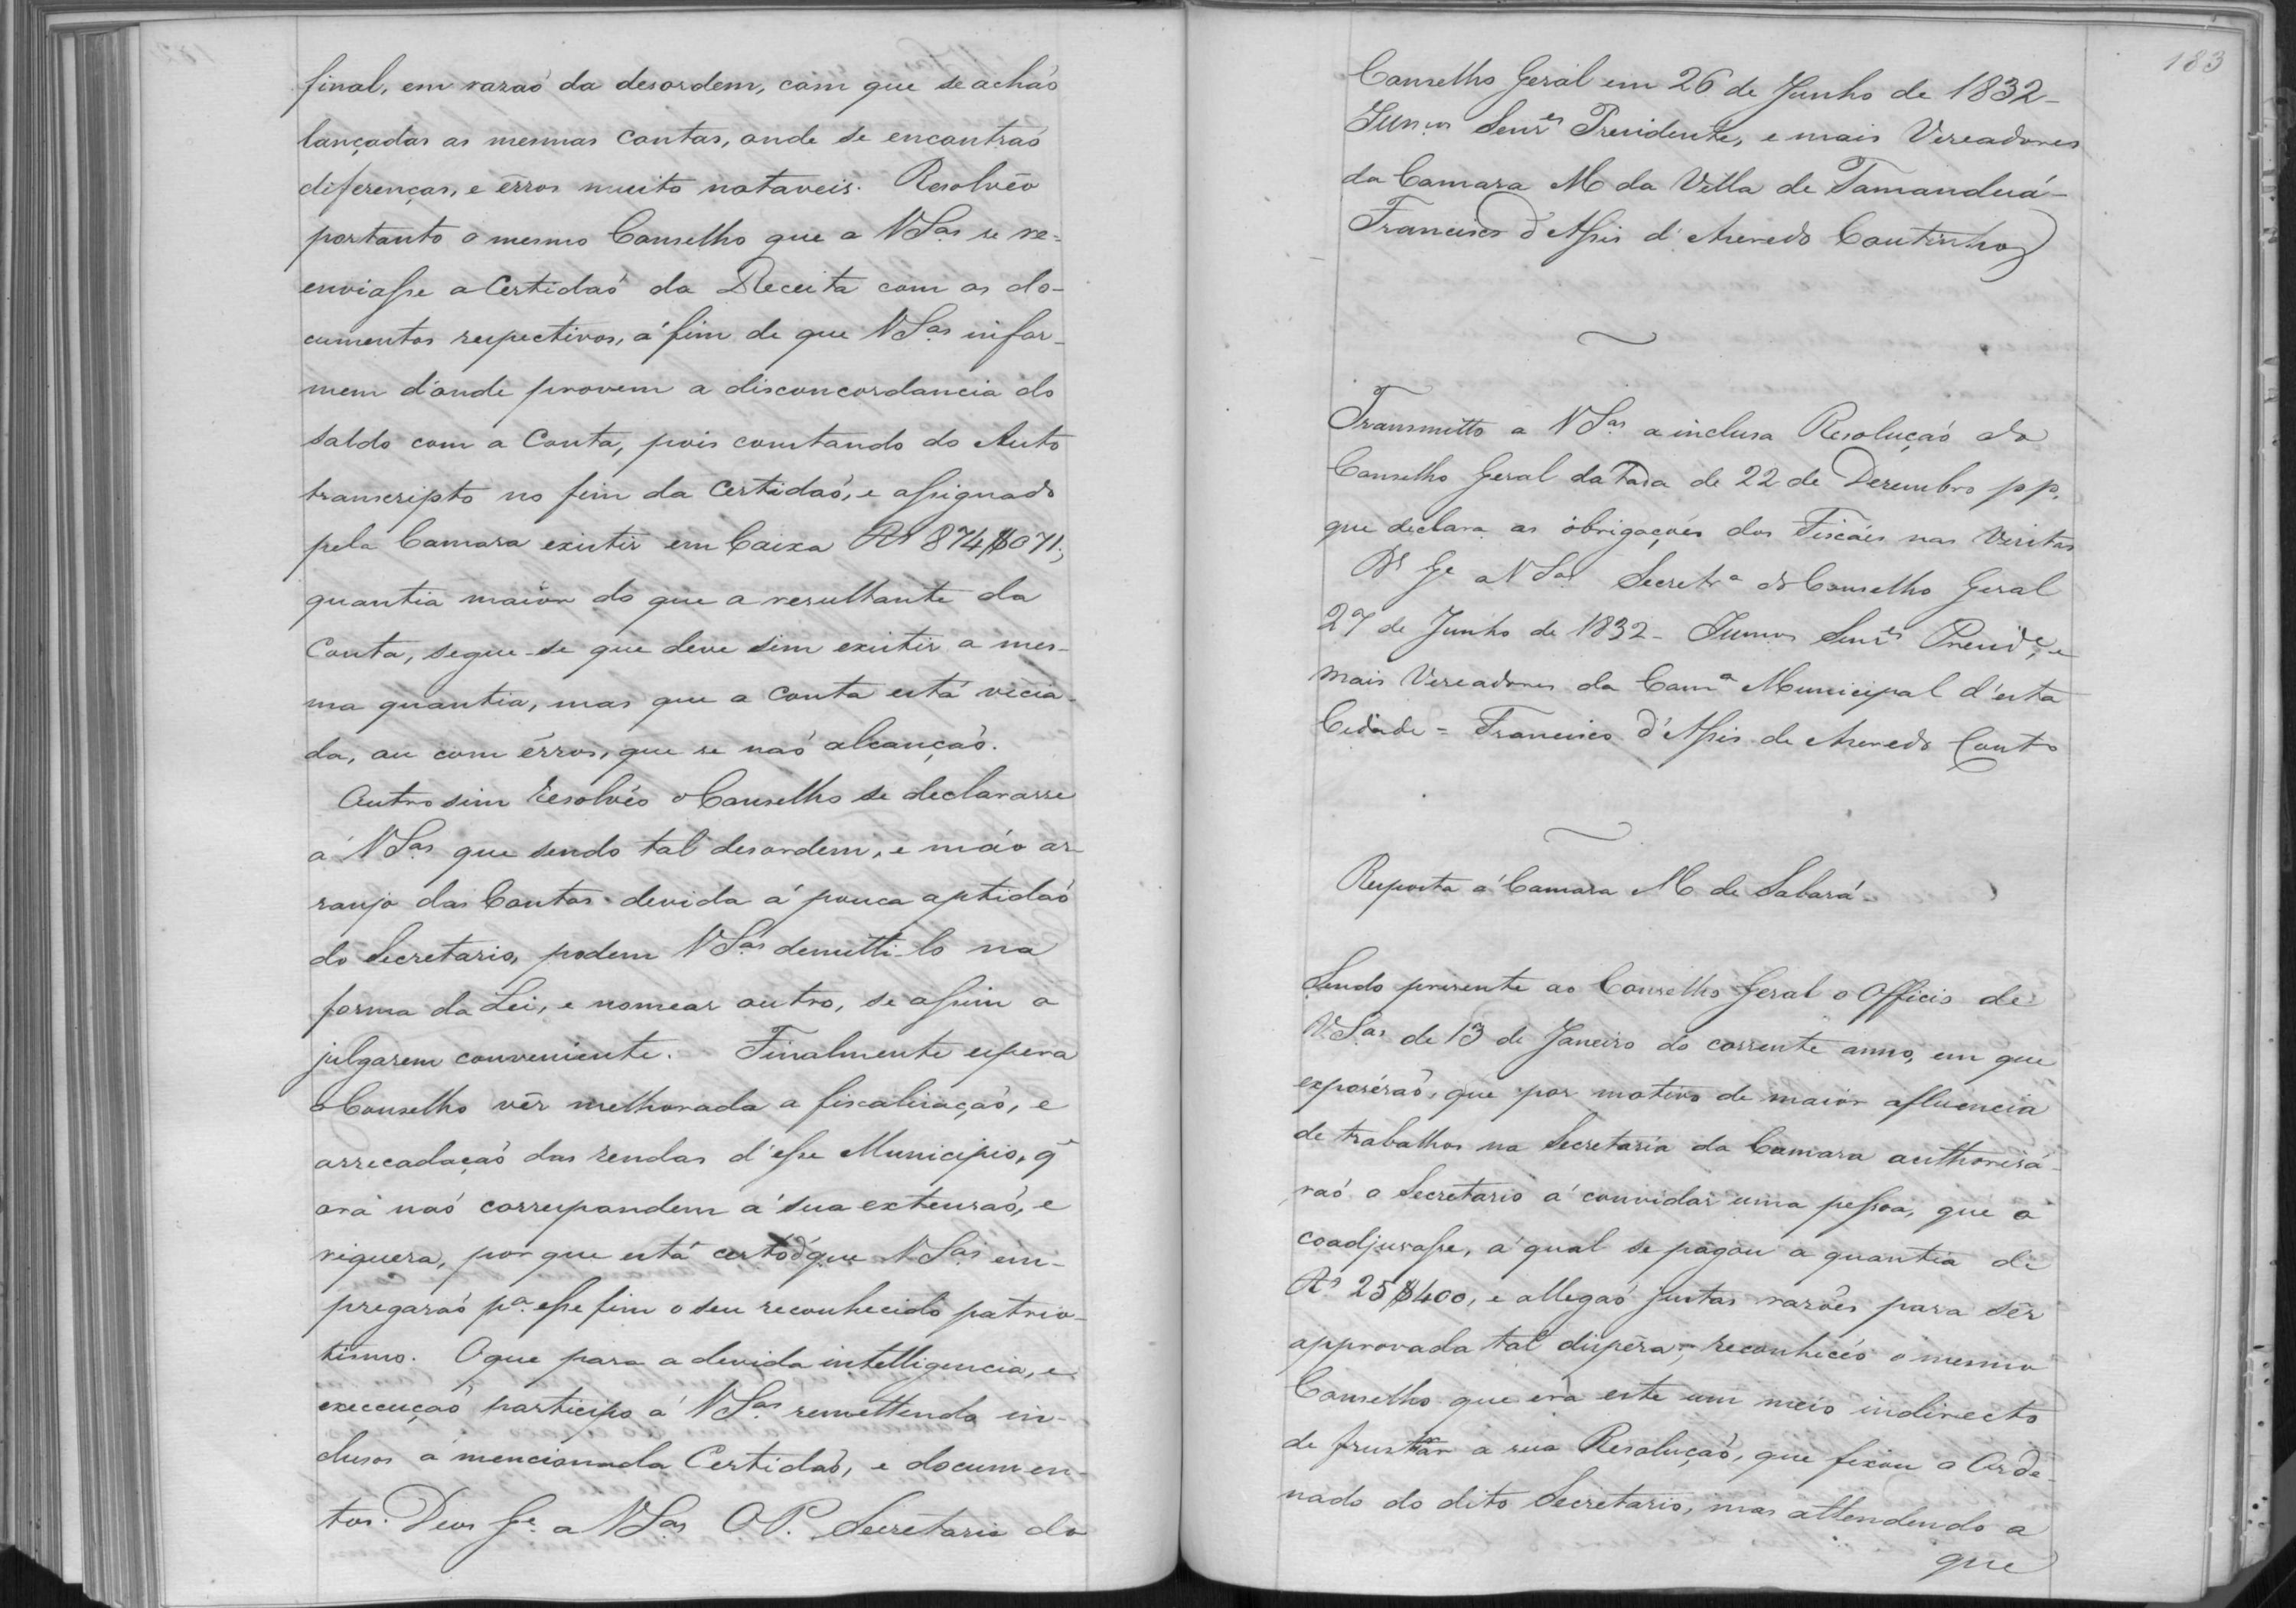 final, em razaõ da desordem, com que se achaõ
lançadas as mesmas contas, onde se encontraõ
diferenças, e êrros muito notaveis. Resolvêo
portanto o mesmo Conselho que a VSas se re=
enviasse a Certidaõ da Receita com os do-
cumentos respectivos, á fim de que VSas infor-
mem d'onde provem a disconcordancia do
saldo com a Conta, pois constando do Auto
transcripto no fim da Certidaõ, e assignado
pela Camara existir em Caixa Rs 874$071;
quantia maior do que a resultante da
Conta, segue-se que deve sim existir a mes-
ma quantia, mas que a conta está vicia-
da, ou com érros, que se naõ alcançaõ.
Outro sim resolvêo o Conselho se declarasse
á VSas que sendo tal desordem, e máo ar-
ranjo das Contas devida á pouca aptidaõ
do Secretario, podem VSas demitti-lo na
forma da Lei, e nomear outro, se assim o
julgarem conveniente. Finalmente espera
o Conselho vêr melhorada a fiscalisaçaõ, e
arrecadaçaõ das rendas d'esse Municipio, q̃
ora naõ correspondem á sua extensaõ, e
riquesa, por que está certo d'que VSas em-
pregaraõ pa. esse fim o seu reconhecido patrio-
tismo. O que para a devida intelligencia, e
execcuçaõ participo á VSas remettendo in-
clusos a mencionada Certidaõ, e documen-
tos. Deos Ge. a VSas O P. Secretaria do
183
Conselho Geral em 26 de Junho de 1832-
Senres Presidente, e mais Vereadores
da Camara M da Villa de Tamanduá-
Francisco d'Assis d'Azeredo Coutinho
Transmitto a VSas a inclusa Resoluçaõ do
Conselho Geral datada de 22 de Dezembro pp.
que declara as obrigações dos Fiscáes nas Visitas
Ds Ge a VSas Secretra do Conselho Geral
27 de Junho de 1832- Senres Preside, e
mais Vereadores da Cama Municipal d'esta
Cidade = Francisco d'Assis de Azeredo Couto
Resposta á Camara M de Sabará-
Sendo presente ao Conselho Geral o Officio de
VSas de 13 de Janeiro do corrente anno, em que
exposéraõ, que por motivo de maior afluencia
de trabalhos na Secretaria da Camara authorisá-
raõ o Secretario á convidar uma pessoa, que o
coadjuvasse, á qual se pagou a quantia de
Rs 25$400, e allegaõ justas razões para sêr
approvada tal dispesa, reconhecêo o mesmo
Conselho que era este um meio indirecto
de frustar a sua Resoluçaõ, que fixou o Orde-
nado do dito Secretario, mas attendendo a
que